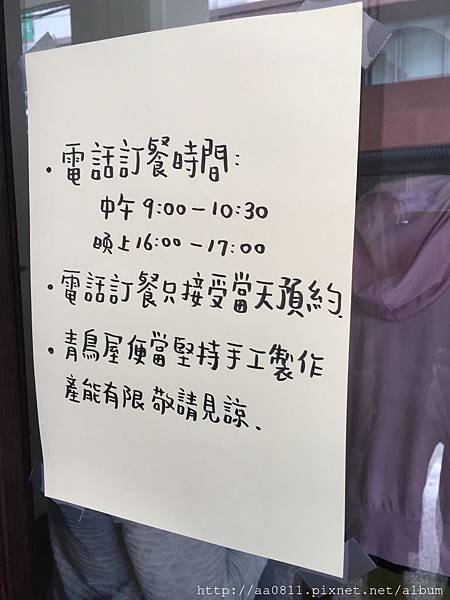 ・電話訂餐時間：
中午 9:00－10:30
晚上 16:00－17:00
・電話訂餐只接受當天預約.
・青鳥屋便當堅持手工製作
產能有限 敬請見諒.
http://aa0811.pixnet.net/album